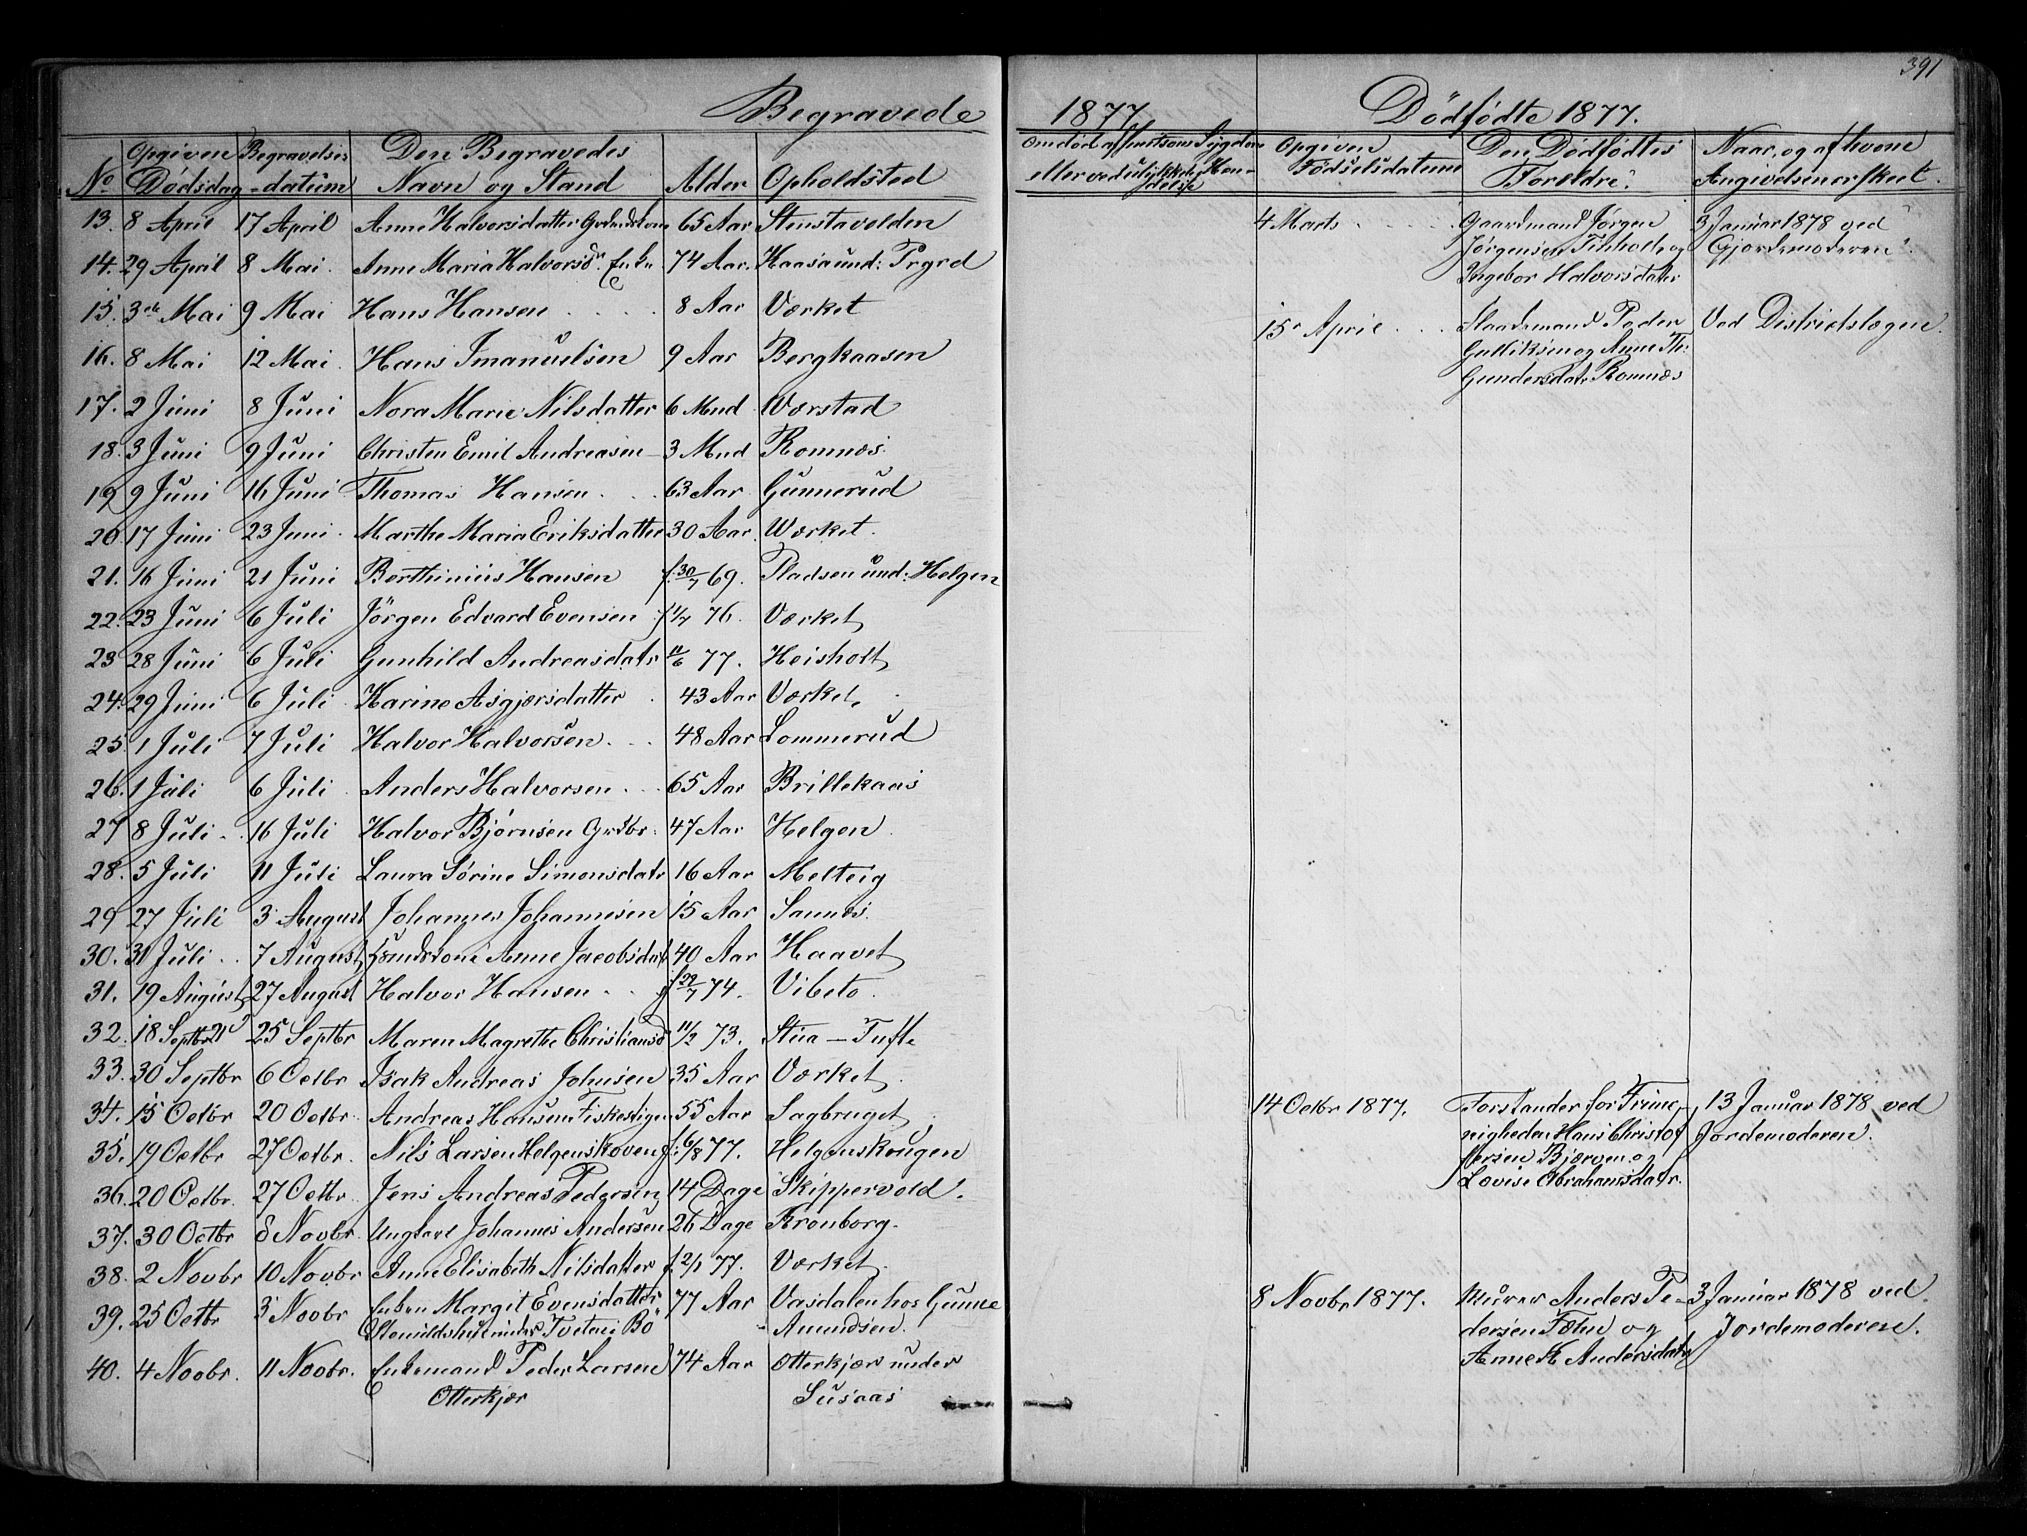 391
Begravede 1877.
No Opgiven Dødsdag Begravelses-datum Den Begravedes Navn og Stand Alder Opholdsted
13. 8 April 17 April Anne Halvorsdatter 65 Aar Stenstavolden
14. 29 April 8 Mai. Anne Maria Halvorsd. Enke 74 Aar. Kaasa und: Prgrd
15. 3die Mai 9 Mai Hans Hansen 8 Aar Værket
16. 8 Mai 12 Mai. Hans Imanuelsen 9 Aar Bergkaasen
17. 2 Juni 8 Juni Nora Marie Nilsdatter 6 Mnd Værstad
18. 3 Juni 9 Juni Christen Emil Andreasen 3 Mnd Romnæs.
19 9 Juni 16 Juni Thomas Hansen 63 Aar Gunnerud
20 17 Juni 23 Juni Marthe Maria Eriksdatter 30 Aar. Værket.
21. 16 Juni 21 Juni Berthinius Hansen f. 30/7 69. Pladsen und: Helgen
22. 23 Juni 6 Juli Jörgen Edvard Evensen f 1/7 76. Værket
23 28 Juni 6 Juli Gunhild Andreasdatr 11/6 77. Hoisholt
24. 29 Juni 6 Juli Karine Asgjersdatter 43 Aar Værket.
25. 1 Juli 7 Juli Halvor Halvorsen 48 Aar Lommerud
26. 1 Juli 6 Juli Anders Halvorsen 65 Aar Brillekaas
27 8 Juli 16 Juli Halvor Bjørnsen Grdbr. 47 Aar Helgen
28. 5 Juli 11 Juli Laura Sørine Simonsdatr 16 Aar Melteig
29 27 Juli 3 August Johannes Johannesen 15 Aar Sannes.
30. 31 Juli 7 August Anne Jacobsdatr 40 Aar Haavet
31. 19 August 27 August Halvor Hansen f 29/7 74. Vibeto.
32. 18 Septbr 25 Septbr Maren Magrethe Christiansd 11/2 73. Stua - Tufte
33. 30 Septbr 6 Octbr Isak Andreas Johnsen 35 Aar Værket
34. 15 Octbr 20 Octbr. Andreas Hansen Fiskestigen 55 Aar Sagbruget
35. 19 Octbr 27 Octbr. Nils Larsen Helgenskoven f. 6/8 77. Helgenskougen
36. 20 Octbr. 27 Octbr. Jens Andreas Pedersen 14 Dage Skippervold.
37. 30 Octbr 8 Novbr. Ungkarl Johannes Andersen 26 Dage Kronborg.
38. 2 Novbr 10 Novbr Anne Elisabeth Nilsdatter f. 2/1 77. Værket.
39. 25 Octbr 3 Novbr Enken Margit Evensdatter 77 Aar Vasdalen hos Gunne
under Tveten i Bö Amundsen.
40. 4 Novbr. 11 Novbr. Enkemand Peder Larsen 74 Aar Otterkjær under
Otterkjær Susaas
Om død af Sygdom
eller ved ulykkelig Hændelse
Dödfödte 1877.
Opgiven Födselsdatum Den Dödfödtes Forældre. Naar, og af hvem Angivelsen er skeet.
4 Marts Gaardmand Jørgen 3 Januar 1878 ved
Jørgensen og Gjordemoderen
Ingebor Halvorsdatter
15 April Peder Ved Districtslægen.
Gulliksen og Anne Th:
Gundersdatr Romnæs
14 Octbr 1877. Forstander for Frime- 13 Januar 1878 ved
nigheden Hans Christof Jordemoderen.
fersen Bjærven og
Lovise Abrahamsdatr.
8 Novbr 1877. Murer Anders Pe- 3 Januar 1878 ved
dersen og Jordemoderen.
Anne K Andersdatr